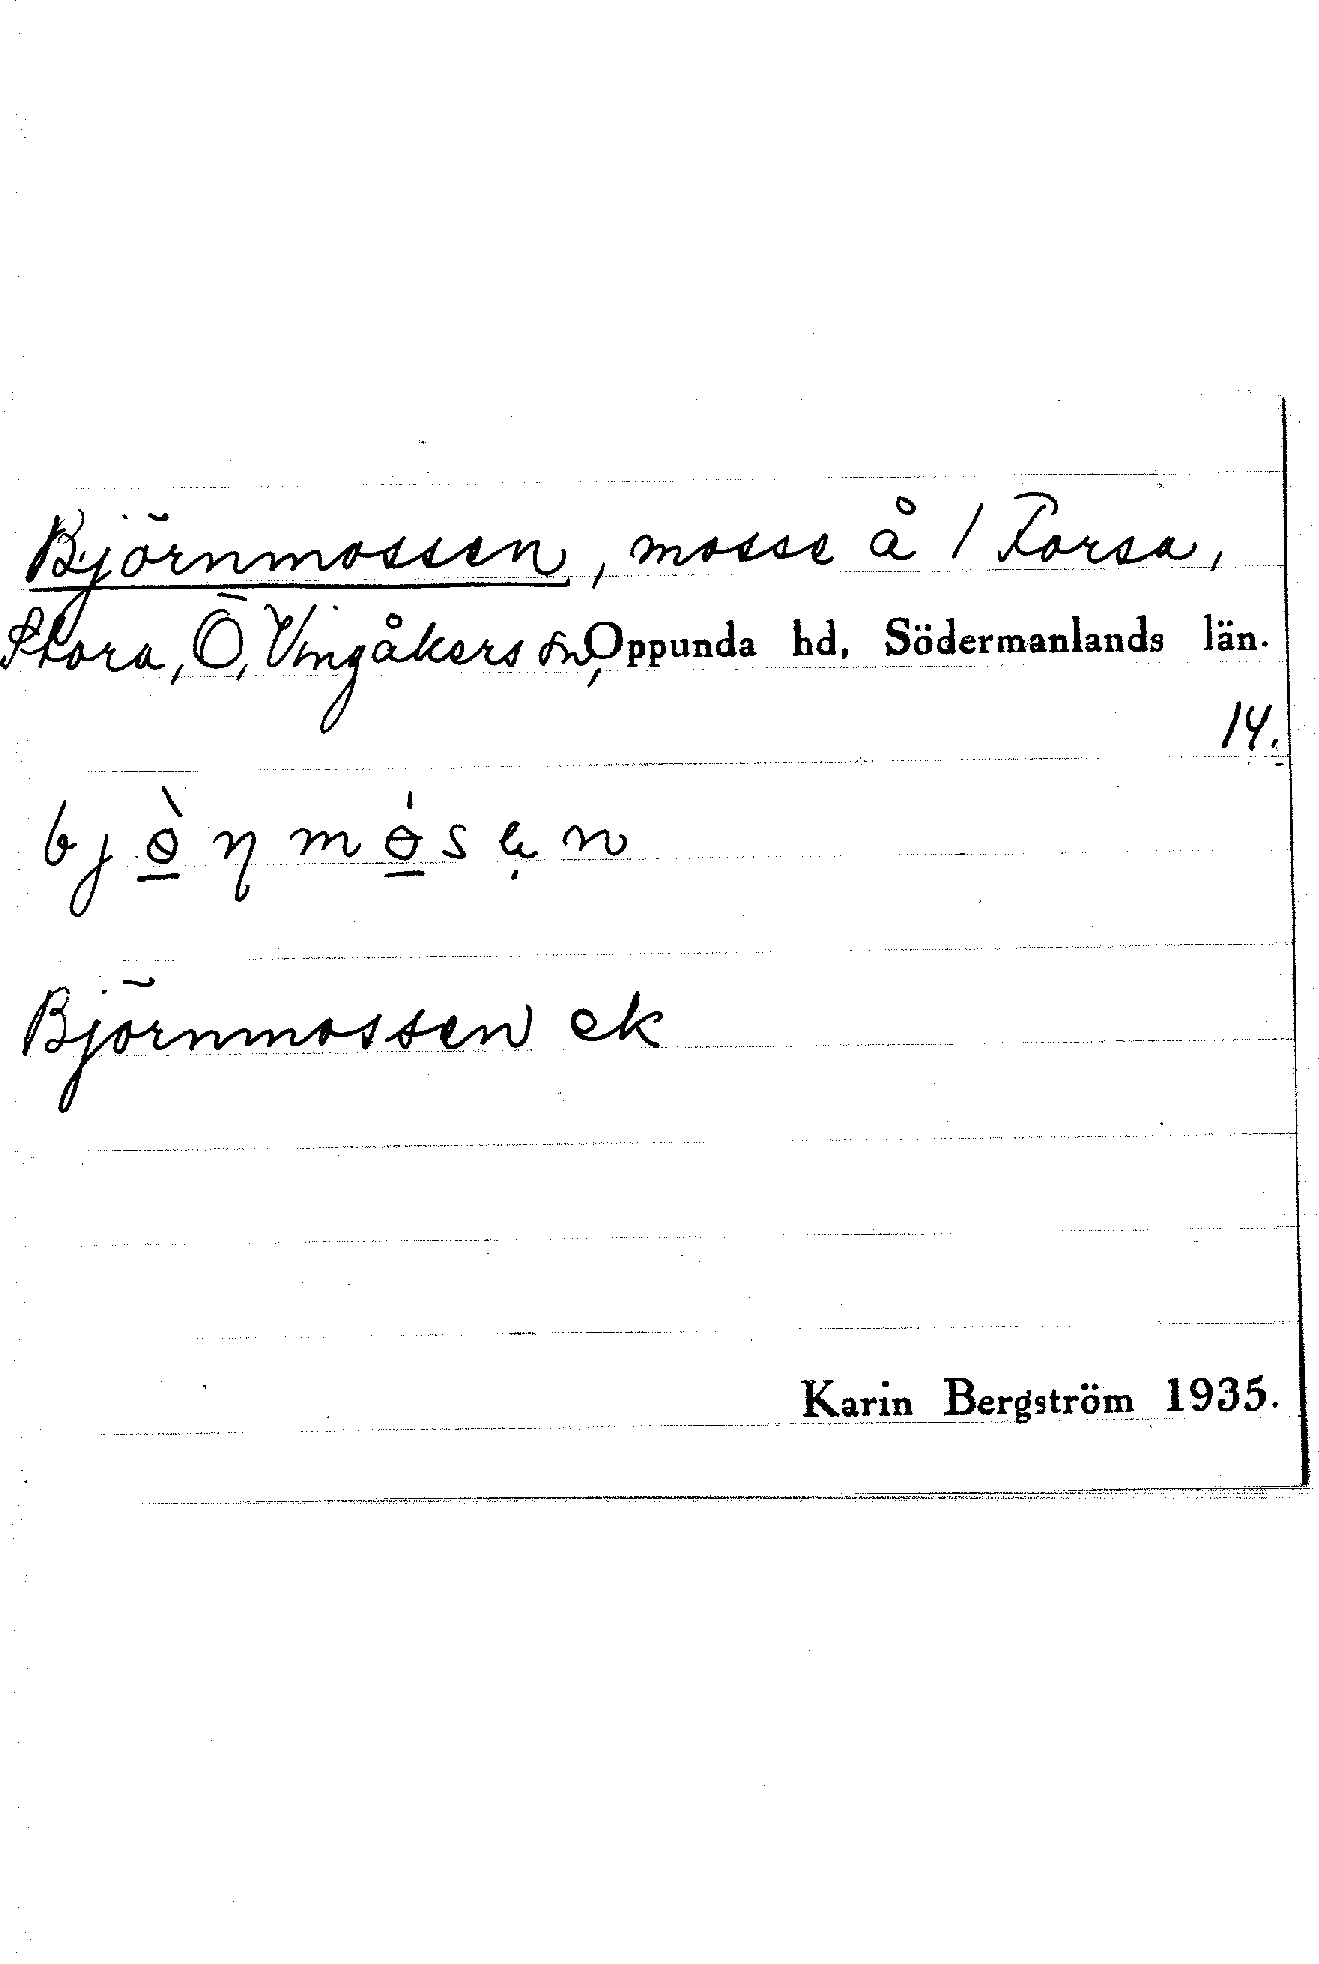 Björnmossen, mosse å 1 Forsa,
Stora, Ö. Vingåkers sn, Oppunda hd, Södermanlands län.
14.
bjɵ̀ɳmɵ́sen
Björnmossen ek
Karin Bergström 1935.